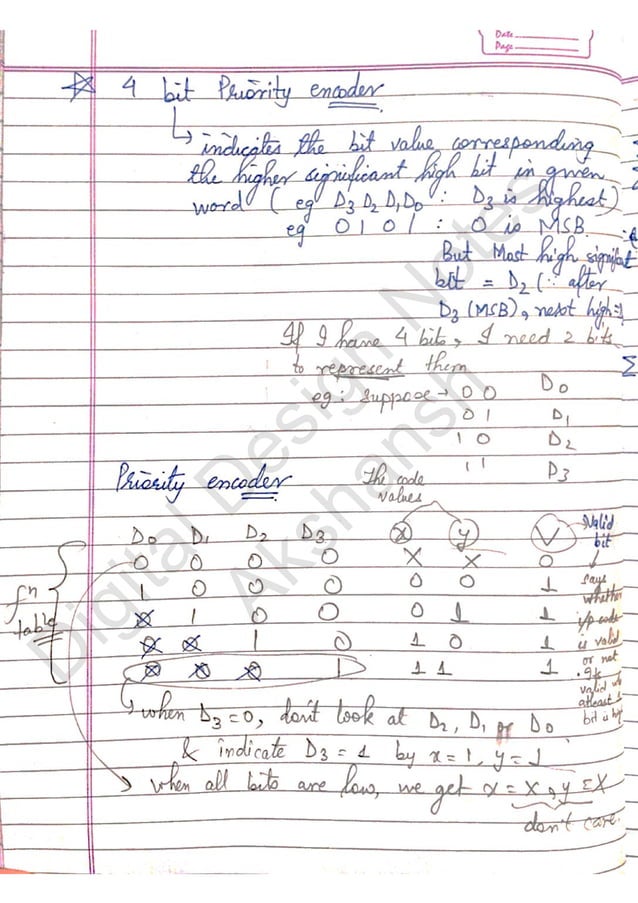 Date
Page
☆ 4 bit Priority encoder
↳ indicates the bit value corresponding
the higher significant high bit in given
word ( eg D3 D2 D1 D0 : D3 is highest)
eg 0 1 0 1 : 0 is MSB.
But Most high significant
bit = D2 (∵ after
D3 (MSB), next high=1
If I have 4 bits, I need 2 bits
to represent them
eg: suppose → 0 0 D0
0 1 D1
1 0 D2
1 1 D3
Priority encoder
The code
values
D0 D1 D2 D3 x y V
Valid
bit
0 0 0 0 X X 0
1 0 0 0 0 0 1
X 1 0 0 0 1 1
X X 1 0 1 0 1
X X X 1 1 1 1
fn
table
says
whether
i/p code
is valid
or not
. Its
valid
atleast
bit is
↳ when D3=0, don't look at D2, D1 or D0
& indicate D3 = 1 by x=1, y=1
→ when all bits are low, we get x = X, y = X
don't care.
Digital Design Notes
Akshansh